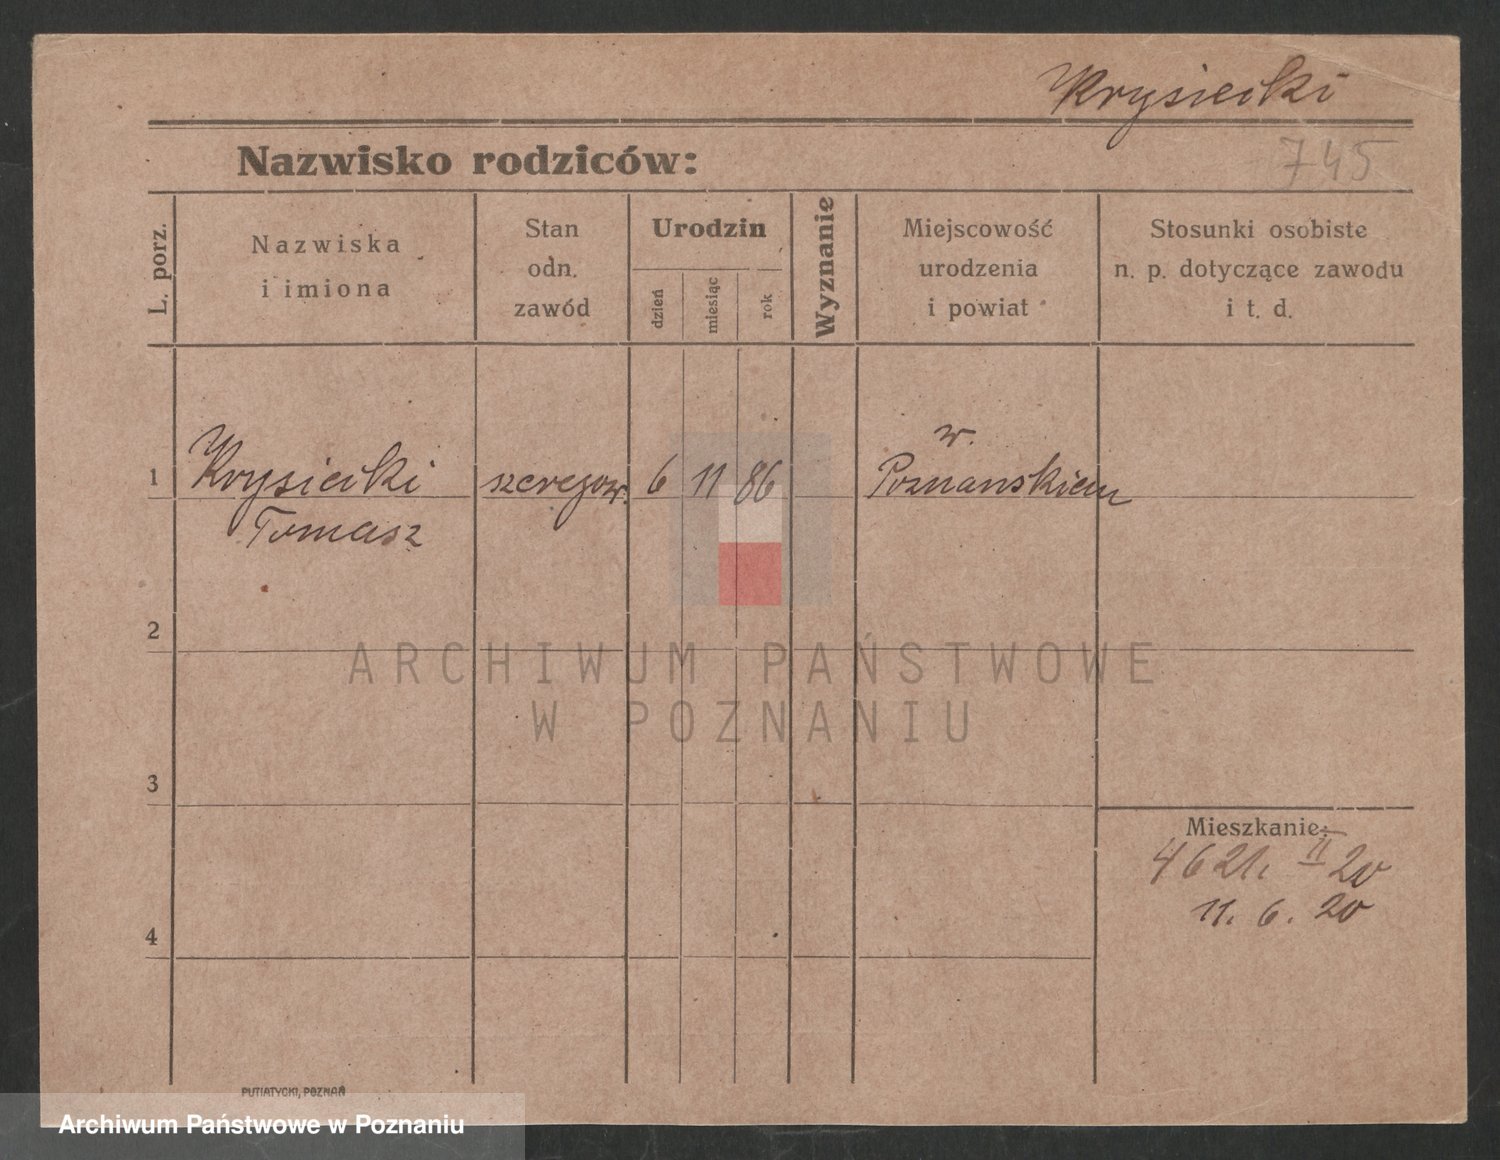 Krysiecki
Nazwisko rodziców:
745
L. porz.
Nazwiska
i imiona
Stan
odn.
zawód
Urodzin
dzień
miesiąc
rok
Wyznanie
Miejscowość
urodzenia
i powiat
Stosunki osobiste
n. p. dotyczące zawodu
i t. d.
1 Krysiecki szeregow. 6 11 86 w.
Poznanskiem
Tomasz
2
ARCHIWUM PAŃSTWOWE
W POZNANIU
3
Mieszkanie:
4621. II 20
11. 6. 20
4
PUTIATYCKI, POZNAŃ
Archiwum Państwowe w Poznaniu